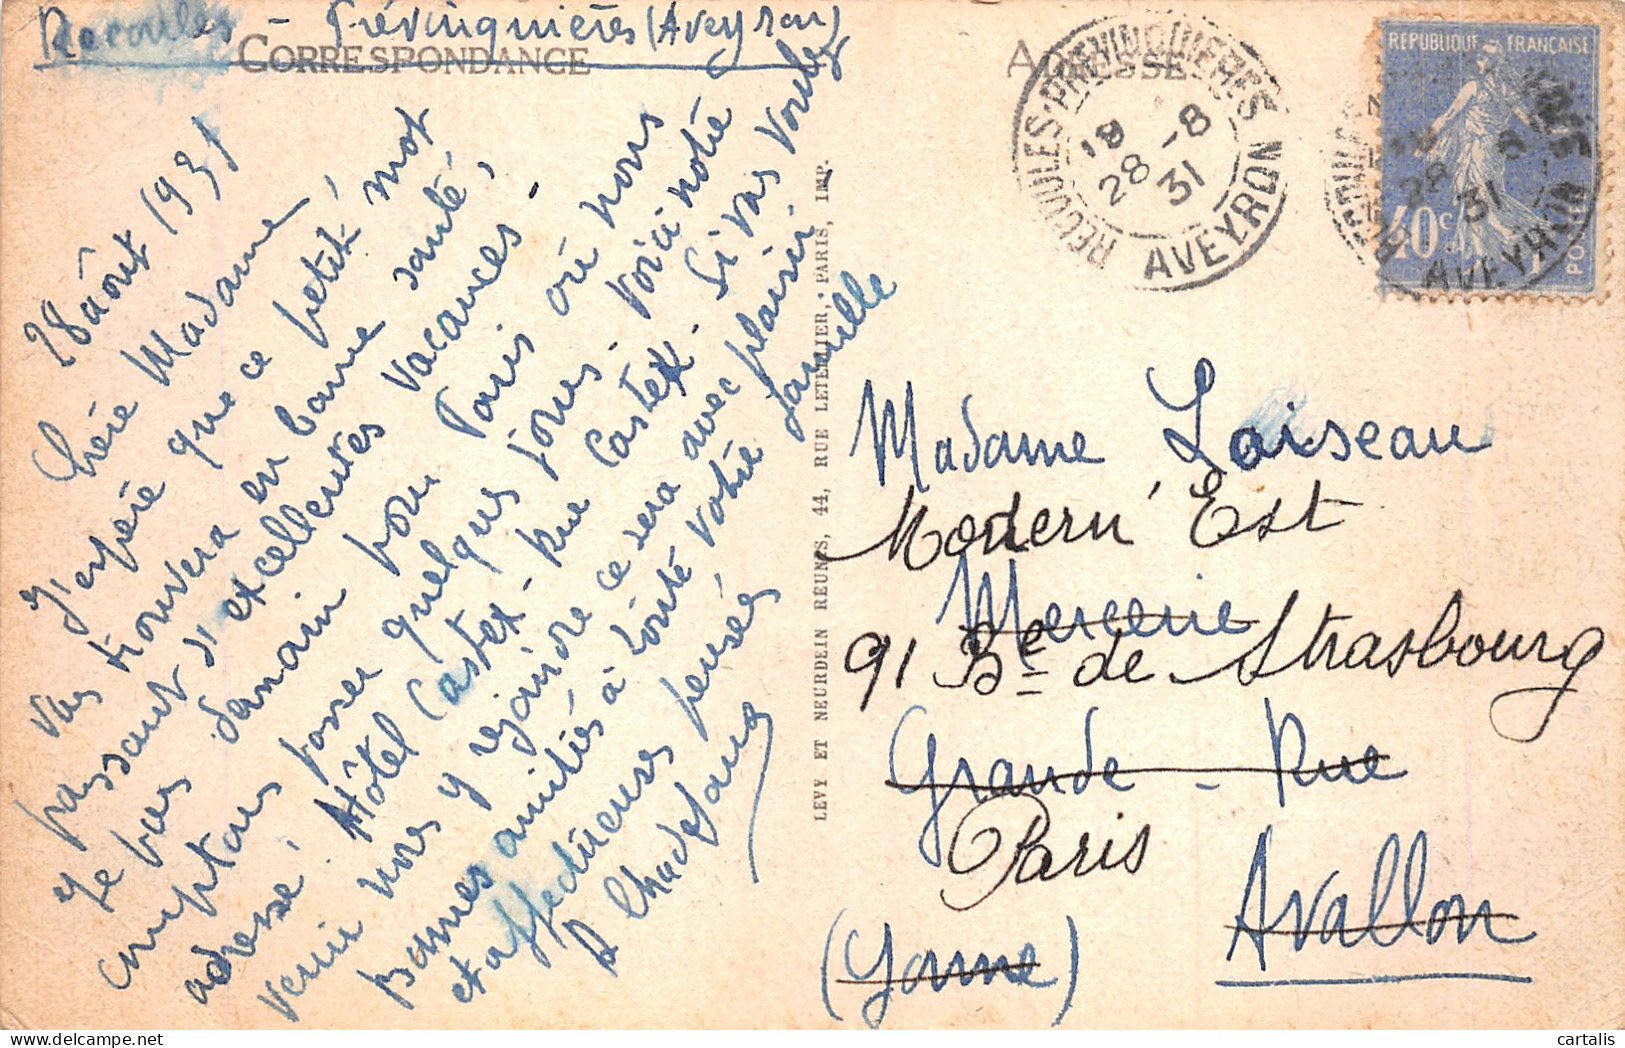 Recoules - Prévinquières (Aveyron)
CORRESPONDANCE
28 août 1931
Chère Madame,
J'espère que ce petit mot
vas trouvera en bonne santé,
passant d'excellentes vacances -
Je pars demain pour Paris où nous
comptons passer quelques jours. Voici notre
adresse : Hôtel Castex - Rue Castex. Si vas voulez
venir nous y rejoindre ce sera avec plaisir
Bonnes amitiés à toute votre famille
et affectueuses pensées
LEVY ET NEURDEIN REUNIS, 44, RUE LETELLIER, PARIS, IMP.
ADRESSE
RECOULES-PREVINQUIERES
18
28 -8
31
AVEYRON
REPUBLIQUE FRANÇAISE
40c
POSTES
28
31
AVEYRON
Madame Loiseau
Modern' Est
Mercerie
91 Bd de Strasbourg
Grande - Rue
Paris
Avallon
(Yonne)
cartalis